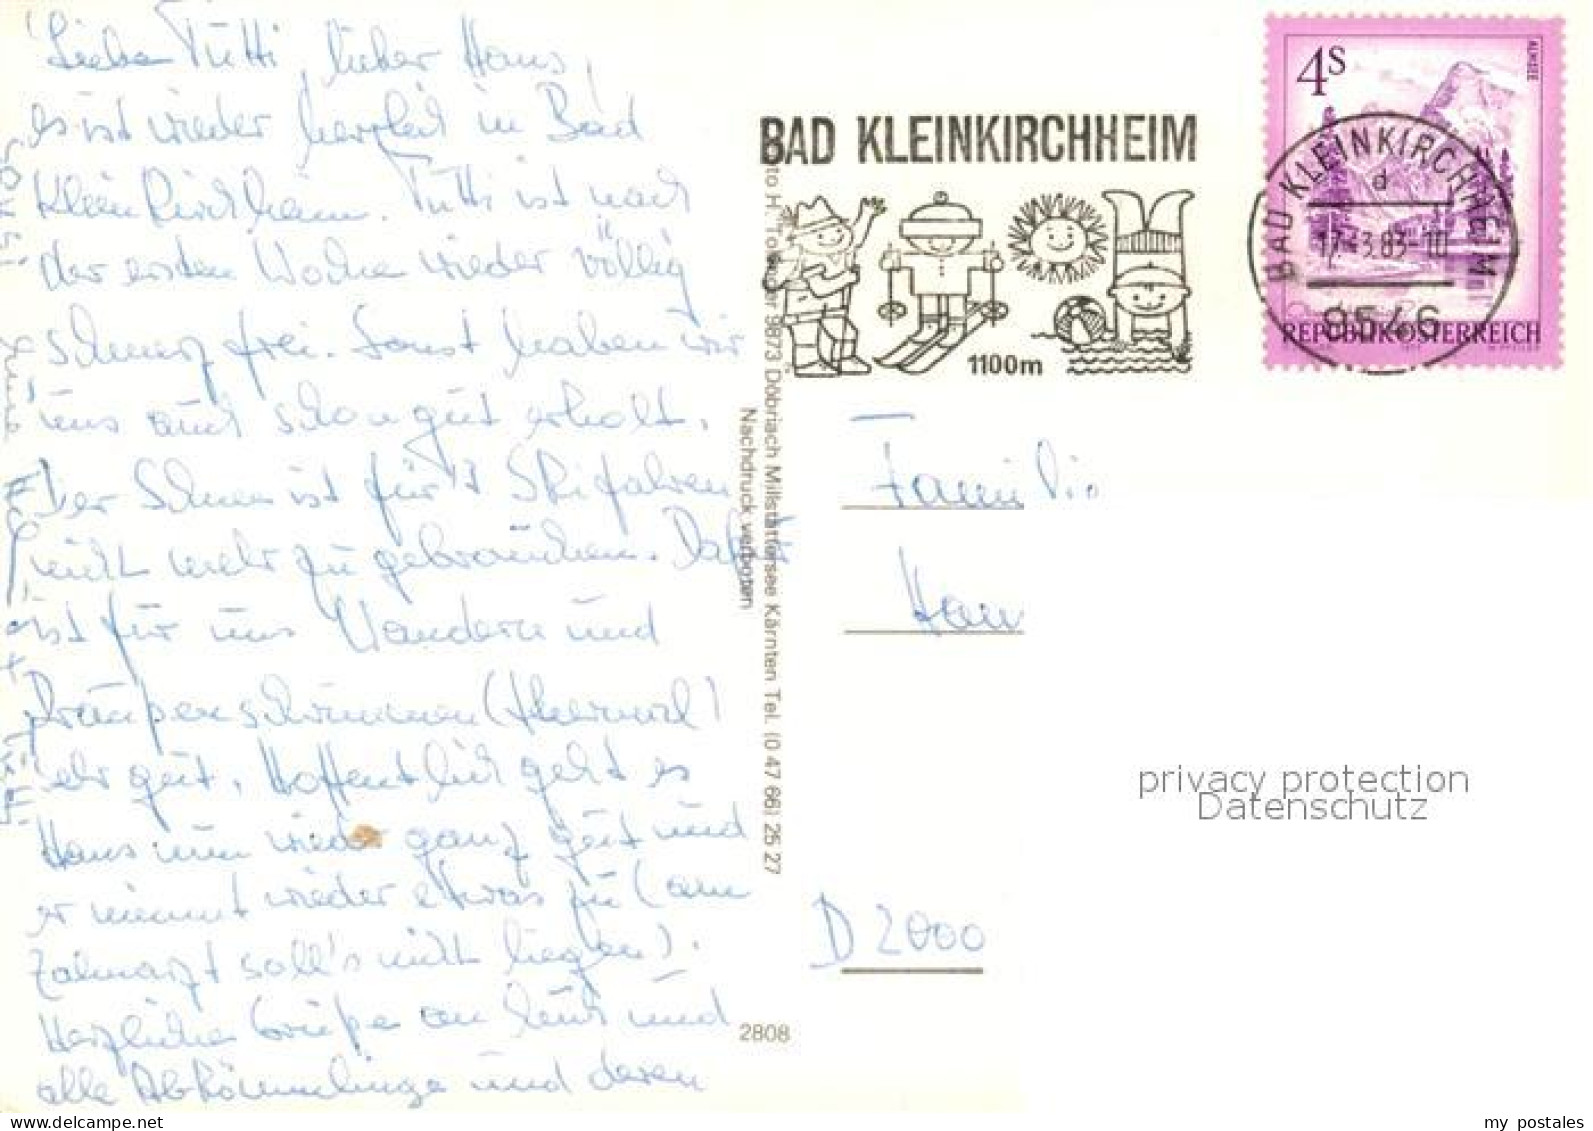 Liebe Tutti, lieber Hans,
es ist wieder herrlich in Bad
Kleinkirchheim. Tutti ist nach
der ersten Woche wieder völlig
schmerzfrei. Sonst haben wir
uns auch schon gut erholt.
Der Schnee ist für's Skifahren
nicht mehr zu gebrauchen. Dafür
ist für uns Wandern und
draußenschwimmen (thermal)
sehr gut. Hoffentlich geht es
Hans nun wieder ganz gut und
er nimmt wieder etwas zu (am
Zahnarzt soll's nicht liegen).
Herzliche Grüße an Euch und
alle Abkömmlinge und deren
BAD KLEINKIRCHHEIM
1100m
4S
ALMSEE
REPUBLIK ÖSTERREICH
BAD KLEINKIRCHHEIM
d
17.-3.83-10
9546
Döbriach Millstättersee Kärnten Tel. (0 47 66) 25 27
Nachdruck verboten
2808
Familie
D 2000
privacy protection
Datenschutz
my_postales